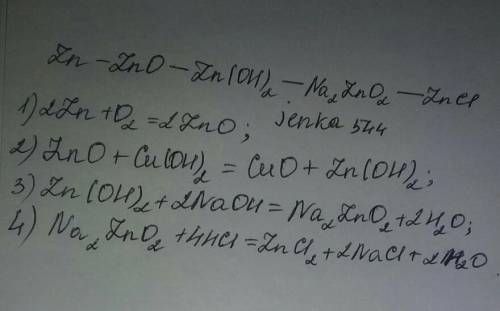 Zn – ZnO – Zn(OH)₂ – Na₂ZnO₂ – ZnCl
1) 2Zn + O₂ = 2ZnO; jenka 544
2) ZnO + Cu(OH)₂ = CuO + Zn(OH)₂;
3) Zn(OH)₂ + 2NaOH = Na₂ZnO₂ + 2H₂O;
4) Na₂ZnO₂ + 4HCl = ZnCl₂ + 2NaCl + 2H₂O